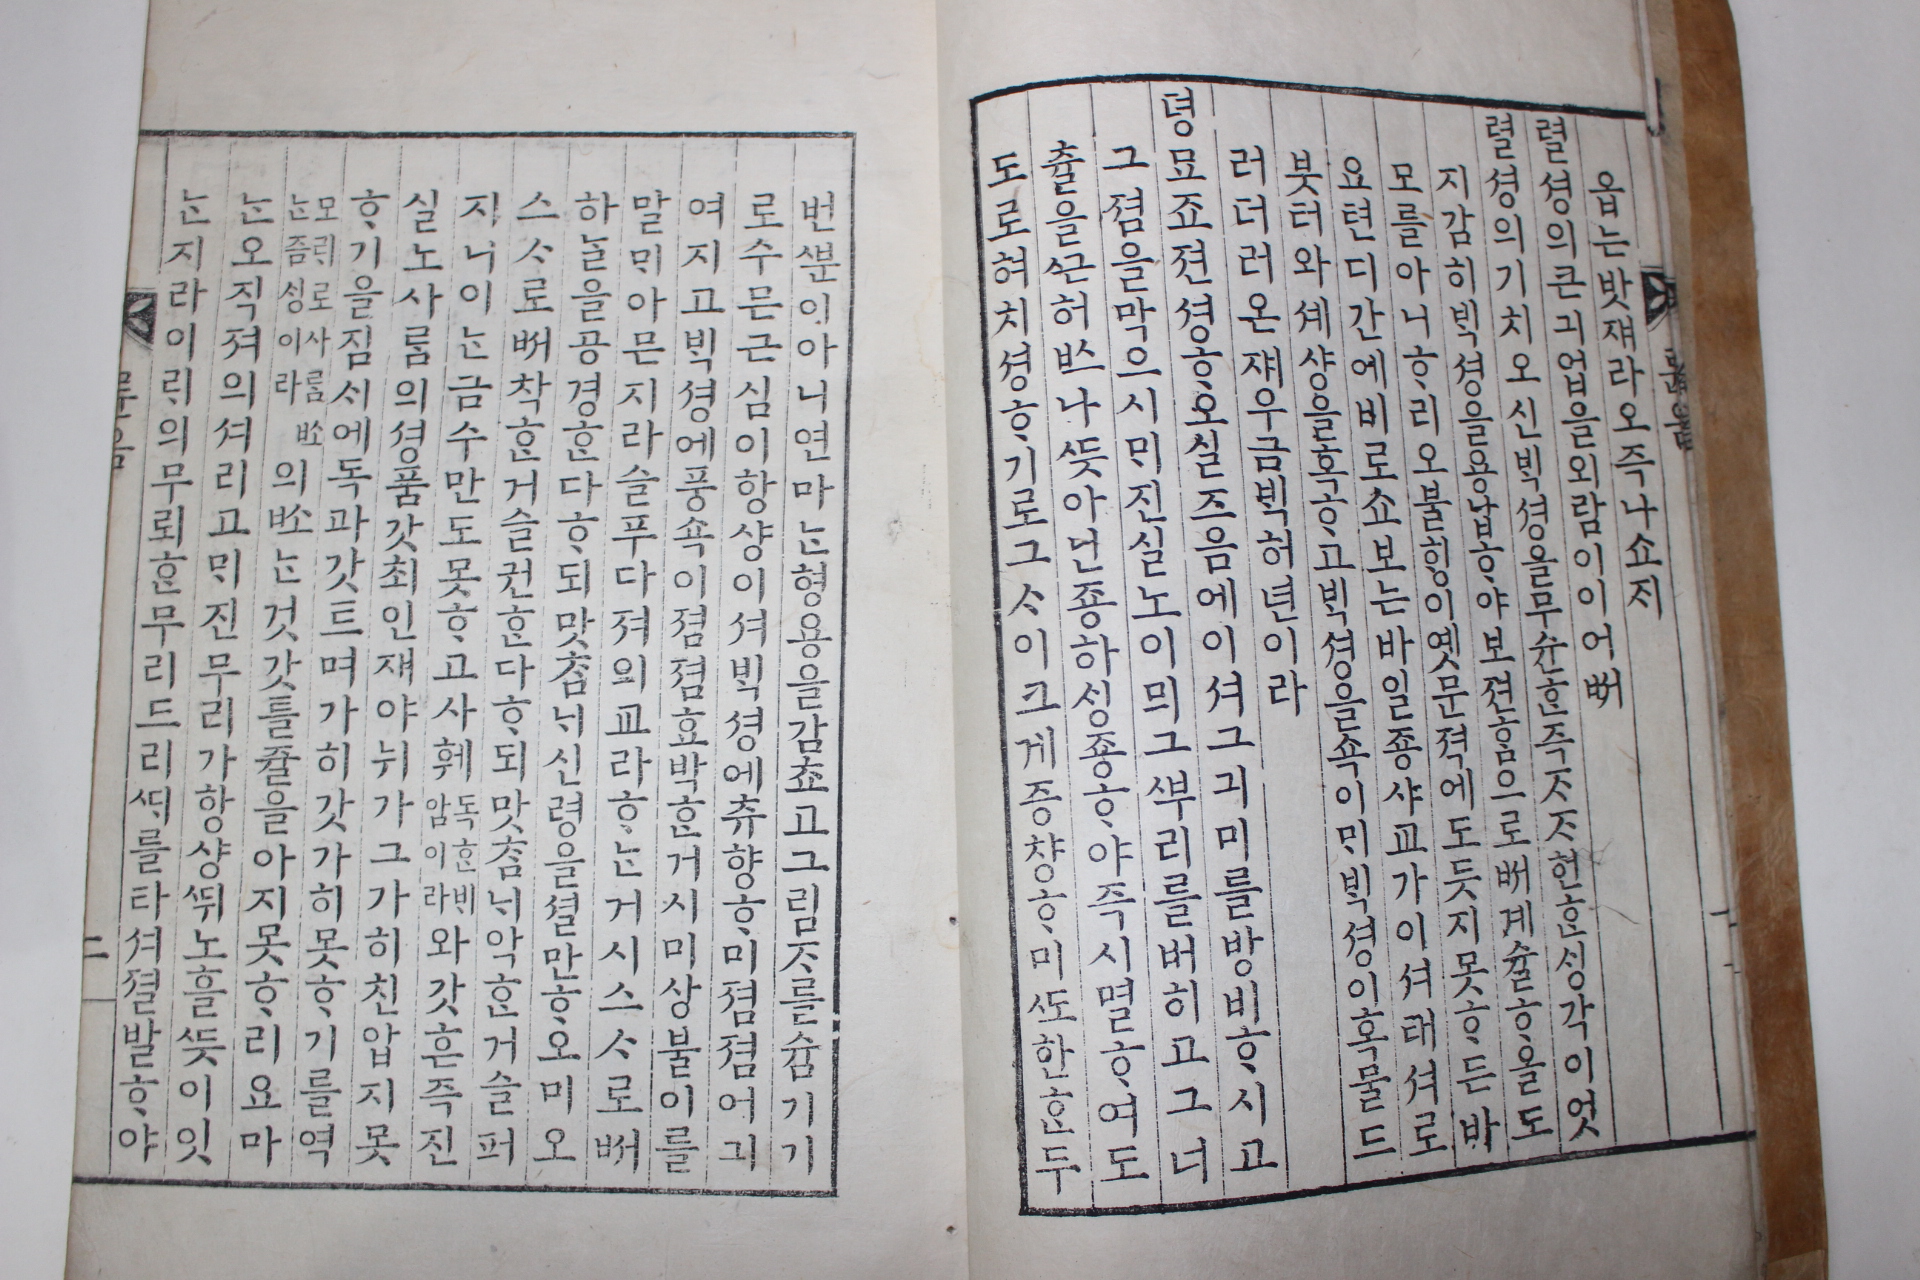 옵는밧쟤라오즉나쇼지
렬셩의큰긔업을외람이이어ᄡᅥ
렬셩의기치오신ᄇᆡᆨ셩을무슌ᄒᆞᆫ즉ᄌᆞᄌᆞ현ᄒᆞᆫ싱각이엇
지감히ᄇᆡᆨ셩을용납ᄒᆞ야보젼ᄒᆞᆷ으로ᄡᅥ계슐ᄒᆞ올도
모를아니ᄒᆞ리오불ᄒᆡᆼ이옛문젹에도듯지못ᄒᆞ든바
요텬디간에비로쇼보는바일죵샤교가이셔태셔로
붓터와셰샹을혹ᄒᆞ고ᄇᆡᆨ셩을쇽이ᄆᆡᄇᆡᆨ셩이혹물드
러더러온쟤우금ᄇᆡᆨ허년이라
뎡묘죠젼셩ᄒᆞ오실즈음에이셔그긔미를방비ᄒᆞ시고
그졈을막으시ᄆᆡ진실노이믜그ᄲᅮ리를버히고그너
츌을ᄭᅳᆫ허ᄇᆞ스나ᄯᅳᆺ아닌죵하싱죵ᄒᆞ야즉시멸ᄒᆞ여도
도로혀치셩ᄒᆞ기로그ᄉᆞ이크게즁챵ᄒᆞ미ᄯᅩ한ᄒᆞᆫ두
번ᄲᅮᆫ이아니연마ᄂᆞᆫ형용을감쵸고그림ᄌᆞ를슘기기
로수믄근심이항샹이셔ᄇᆡᆨ셩에츄향ᄒᆞ미졈졈어긔
여지고ᄇᆡᆨ셩에풍쇽이졈졈효박ᄒᆞᆫ거시미상불이를
말ᄆᆡ아믄지라슬푸다져의교라ᄒᆞᄂᆞᆫ거시스ᄉᆞ로ᄡᅥ
하ᄂᆞᆯ을공경ᄒᆞᆫ다ᄒᆞ되맛ᄎᆞᆷᄂᆡ신령을셜만ᄒᆞ오미오
스ᄉᆞ로ᄡᅥ착ᄒᆞᆫ거슬권ᄒᆞᆫ다ᄒᆞ되맛ᄎᆞᆷᄂᆡ악ᄒᆞᆫ거슬퍼
지니이ᄂᆞᆫ금수만도못ᄒᆞ고사훼독ᄒᆞᆫᄇᆡ암이라와갓ᄒᆞᆫ즉진
실노사ᄅᆞᆷ의셩품갓쵠인쟤야뉘가그가히친압지못
ᄒᆞ기을짐ᄉᆞ에독과갓트며가히갓가히못ᄒᆞ기를역
모ᄅᆡ로사ᄅᆞᆷᄡᅩᄂᆞᆫ즘싱이라의ᄡᅩᄂᆞᆫ것갓틀쥴을아지못ᄒᆞ리요마
ᄂᆞᆫ오직져의셔리고ᄆᆡ진무리가항샹ᄯᅱ노흘ᄯᅳᆺ이잇
ᄂᆞᆫ지라이ᄅᆡ의무뢰ᄒᆞᆫ무리드리ᄯᆡ를타셔졀발ᄒᆞ야
륜음
二